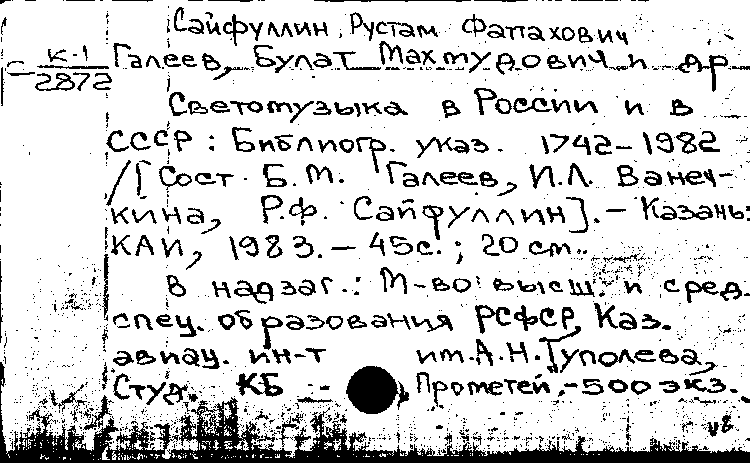 Сайфуллин, Рустам Фатахович
С К-1/2872 Галеев, Булат Махмудович и др
Светомузыка в России и в
СССР : Библиогр. указ. 1742-1982
/[Сост. Б.М. Галеев, И.Л. Ванеч-
кина, Р.Ф. Сайфуллин]. - Казань:
КАИ, 1983. - 45с. ; 20 см..
В надзаг.: М-во высш. и сред.
спец. образования РСФСР, Каз.
авиац. ин-т им.А.Н.Туполева,
Студ. КБ - Прометей.-500 экз.